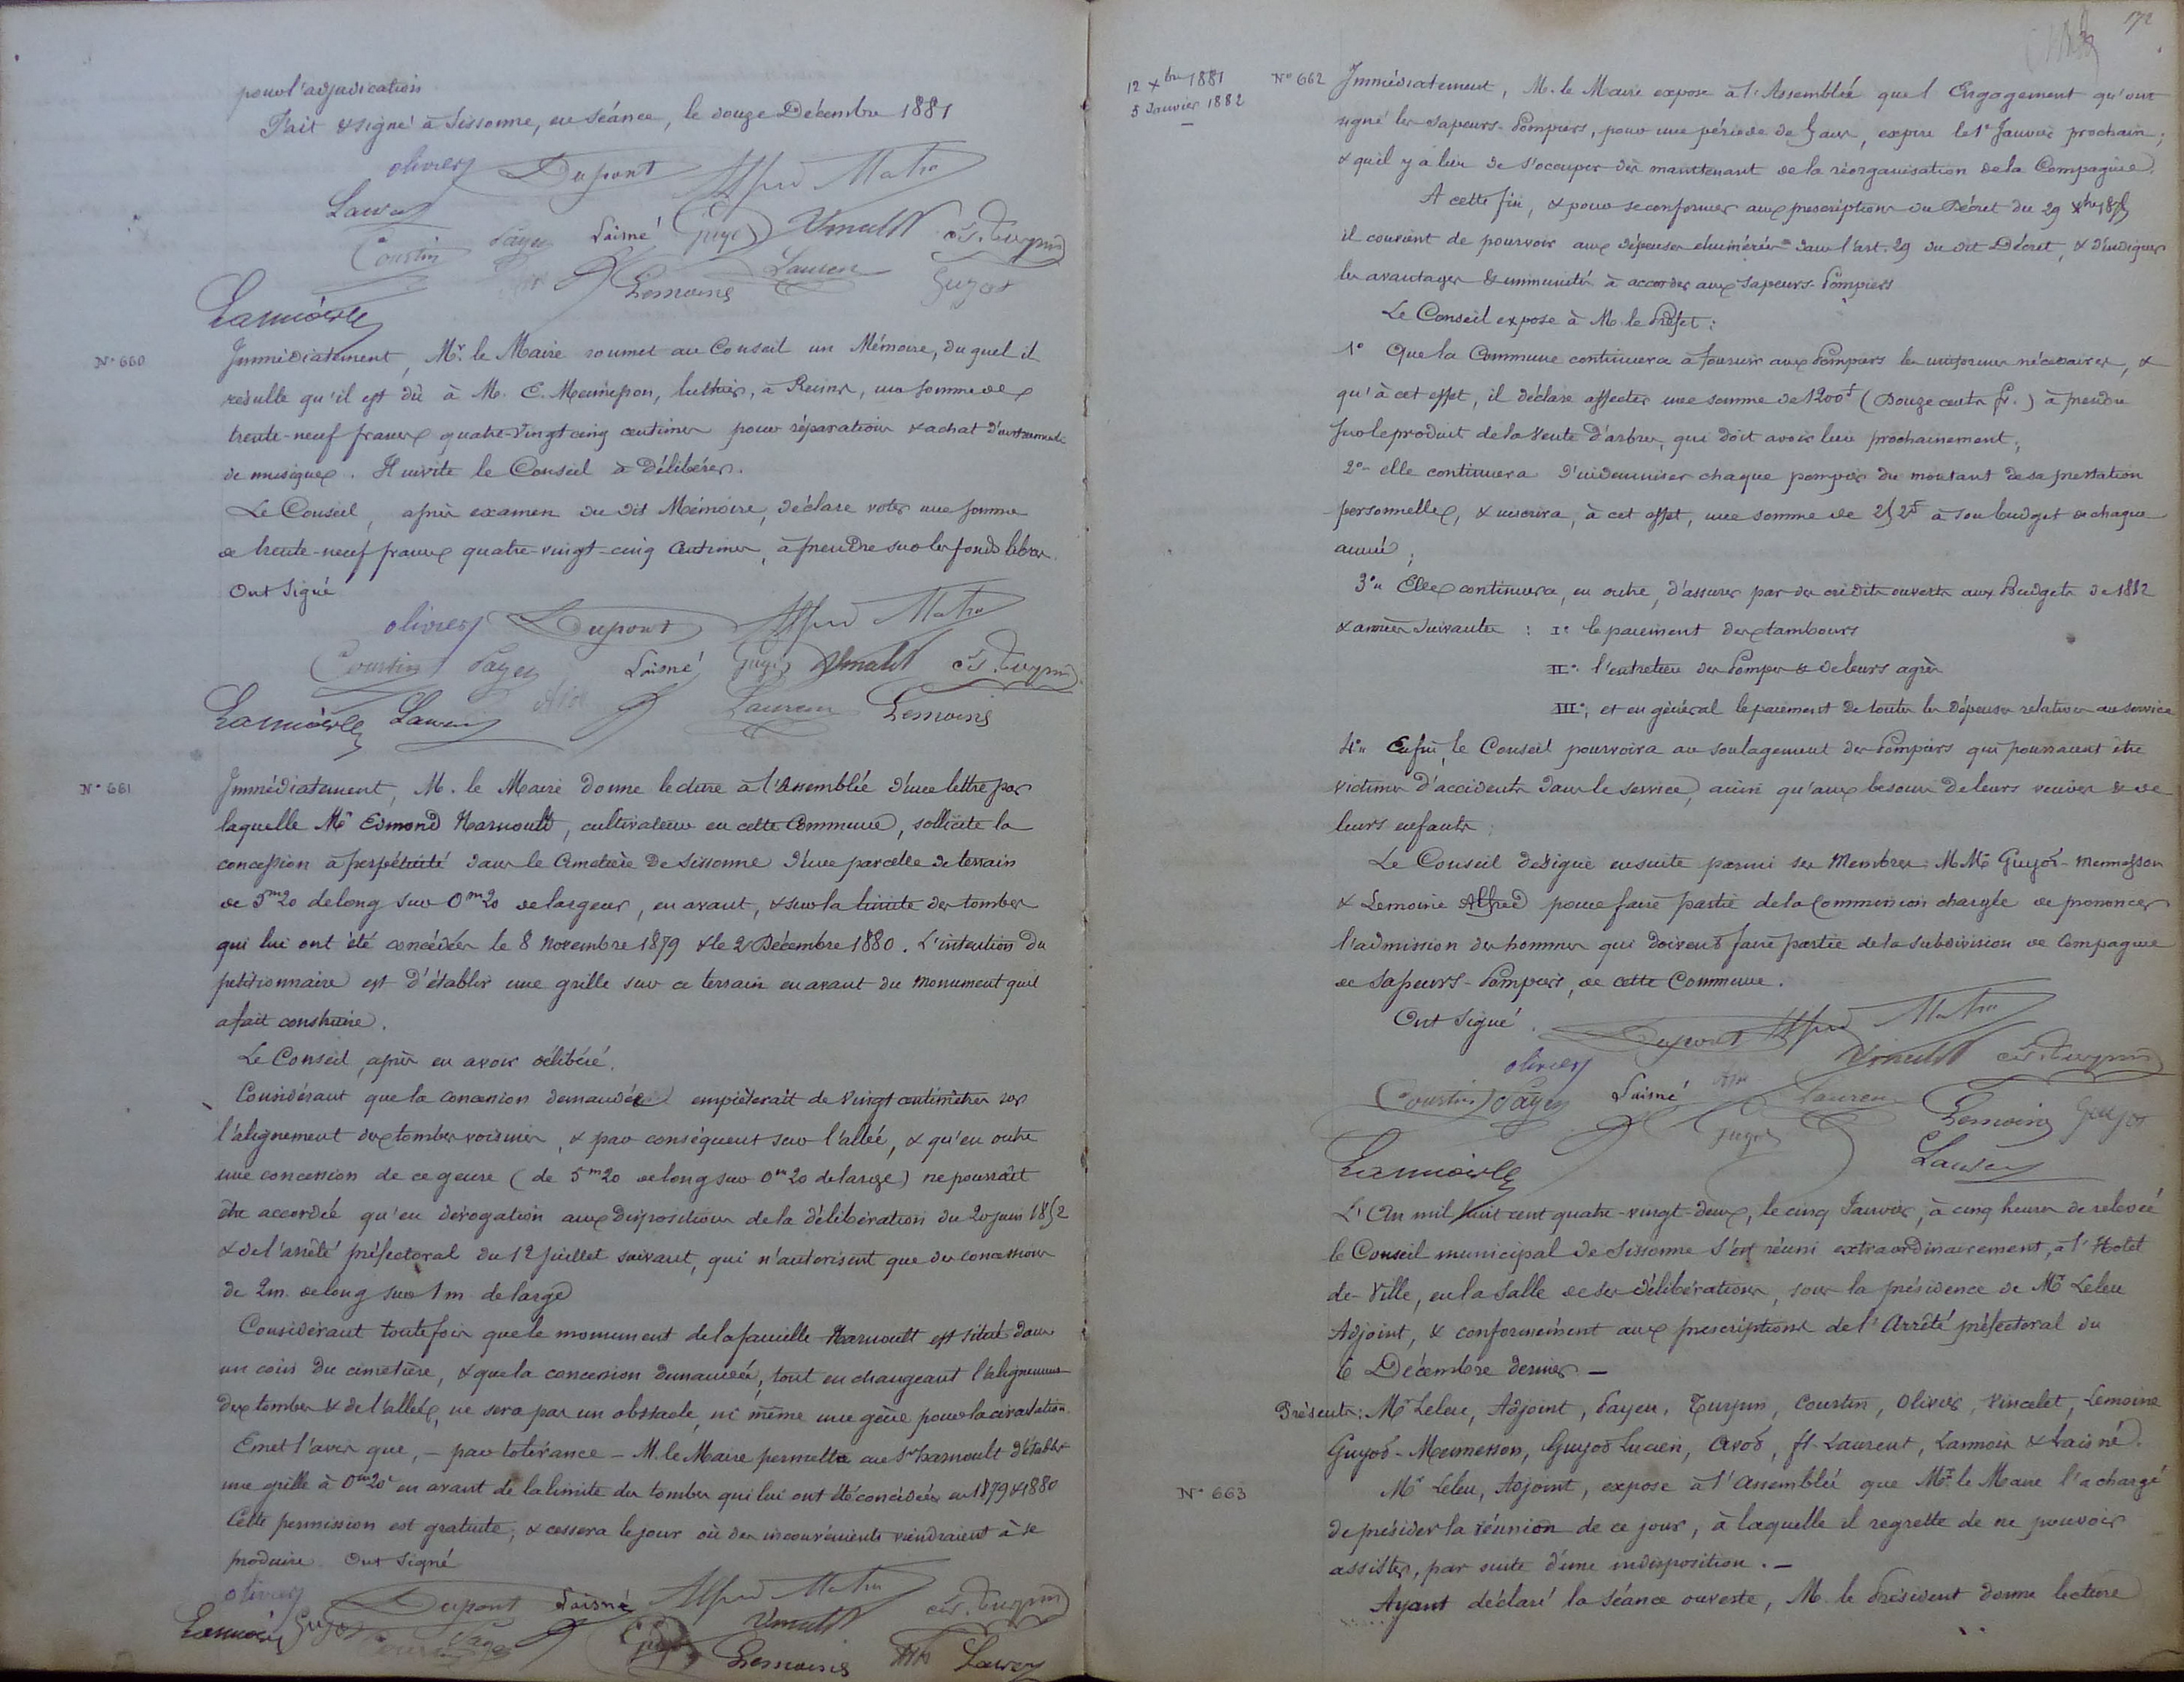 pour l'adjudication
Fait & signé à Sissonne, en séance, le douze Décembre 1881
olivier Dupont Alfred
Courtin Payen Laisné Guyot Vincelet Turpin
Lemoine Laurent Guyot
N° 660
Immédiatement, Mr. le Maire soumet au Conseil un Mémoire, du quel il
résulte qu'il est dû à M. E. Mennesson, luthier, à Reims, une somme de
trente-neuf francs quatre-vingt cinq centimes pour réparation & achat d'instruments
de musique. Il invite le Conseil à Délibérer.
Le Conseil, après examen du dit Mémoire, déclare voter une somme
de trente-neuf francs quatre-vingt-cinq centimes, à prendre sur les fonds libres.
Ont Signé
olivier Dupont Alfred
Courtin Payen Laisné Guyot Vincelet Turpin
Laurent Lemoine
N° 661
Immédiatement, M. le Maire donne lecture à l'Assemblée d'une lettre par
laquelle Mr Edmond Harnoult, cultivateur en cette Commune, sollicite la
concession à perpétuité dans le Cimetière de Sissonne d'une parcelle de terrain
de 5m20 de long sur 0m20 de largeur, en avant, & sur la limite des tombes
qui lui ont été concédées le 8 Novembre 1879 & le 2 Décembre 1880. L'intention du
pétitionnaire est d'établir une grille sur ce terrain en avant du Monument qu'il
a fait construire.
Le Conseil, après en avoir délibéré,
Considérant que la concession demandée empièterait de vingt centimètres sur
l'alignement des tombes voisines, & par conséquent sur l'allée, & qu'en outre
une concession de ce genre (de 5m20 de long sur 0m20 de large) ne pourrait
être accordée qu'en dérogation aux dispositions de la délibération du 20 juin 1852
& de l'arrêté préfectoral du 12 Juillet suivant, qui n'autorisent que des concessions
de 2m. de long sur 1m de large
Considérant toutefois que le monument de la famille Harnoult est situé dans
un coin du cimetière, & que la concession demandée, tout en changeant l'alignement
des tombes & de l'allée, ne sera pas un obstacle, ni même une gêne pour la circulation.
Emet l'avis que, — par tolérance — M. le Maire permette au Sr Harnoult d'établir
une grille à 0m20c en avant de la limite des tombes qui lui ont été concédées en 1879 & 1880
Cette permission est gratuite, & cessera le jour où des inconvénients viendraient à se
produire. Ont Signé
olivier Dupont Laisné Alfred Turpin
Guyot Vincelet
Lemoine
172
12 Xbre 1881
5 Janvier 1882
N° 662 Immédiatement, M. le Maire expose à l'Assemblée que l'Engagement qu'ont
signé les Sapeurs-Pompiers, pour une période de 5 ans, expire le 1er Janvier prochain;
& qu'il y a lieu de s'occuper dès maintenant de la réorganisation de la Compagnie.
A cette fin, & pour se conformer aux prescriptions du Décret du 29 Xbre 1875
il convient de pourvoir aux dépenses énumérées dans l'art. 29 du dit Décret, & d'indiquer
les avantages & immunités à accorder aux Sapeurs-Pompiers
Le Conseil expose à M. le Préfet:
1° Que la Commune continuera à fournir aux Pompiers les uniformes nécessaires, &
qu'à cet effet, il déclare affecter une somme de 1200f (Douze cents fr.) à prendre
sur le produit de la vente d'arbres, qui doit avoir lieu prochainement;
2° elle continuera d'indemniser chaque pompier du montant de sa prestation
personnelle, & inscrira, à cet effet, une somme de 252f à son budget de chaque
année;
3° Elle continuera, en outre, d'assurer par des crédits ouverts aux Budgets de 1882
& années suivantes: I° le paiement des tambours
II° l'entretien des Pompes & de leurs agrès
III°, et en général le paiement de toutes les dépenses relatives au service
4° Enfin, le Conseil pourvoira au soulagement des Pompiers qui pourraient être
victimes d'accidents dans le service, ainsi qu'aux besoins de leurs veuves & de
leurs enfants;
Le Conseil désigne ensuite parmi ses Membres: M Mrs Guyot-Mennesson
& Lemoine Alfred pour faire partie de la Commission chargée de prononcer
l'admission des hommes qui doivent faire partie de la subdivision de Compagnie
de Sapeurs-Pompiers, de cette Commune.
Ont Signé.
Dupont Alfred
olivier Vincelet Turpin
Courtin Payen Laisné Laurent Lemoine Guyot
L'An mil huit cent quatre-vingt-deux, le cinq Janvier, à cinq heures de relevée
le Conseil municipal de Sissonne s'est réuni extraordinairement, à l'Hotel
de-Ville, en la Salle de ses délibérations, sous la présidence de Mr Leleu
Adjoint, & conformément aux prescriptions de l'Arrêté préfectoral du
6 Décembre dernier —
Présents: Mr Leleu, Adjoint, Payen, Turpin, Courtin, Olivier, Vincelet, Lemoine
Guyot-Mennesson, Guyot Lucien, Avot, ft-Laurent, Lannois & Laisné.
N° 663
Mr Leleu, Adjoint, expose à l'Assemblée que Mr. le Maire l'a chargé
de présider la réunion de ce jour, à laquelle il regrette de ne pouvoir
assister, par suite d'une indisposition. —
Ayant déclaré la Séance ouverte, M. le Président donne lecture